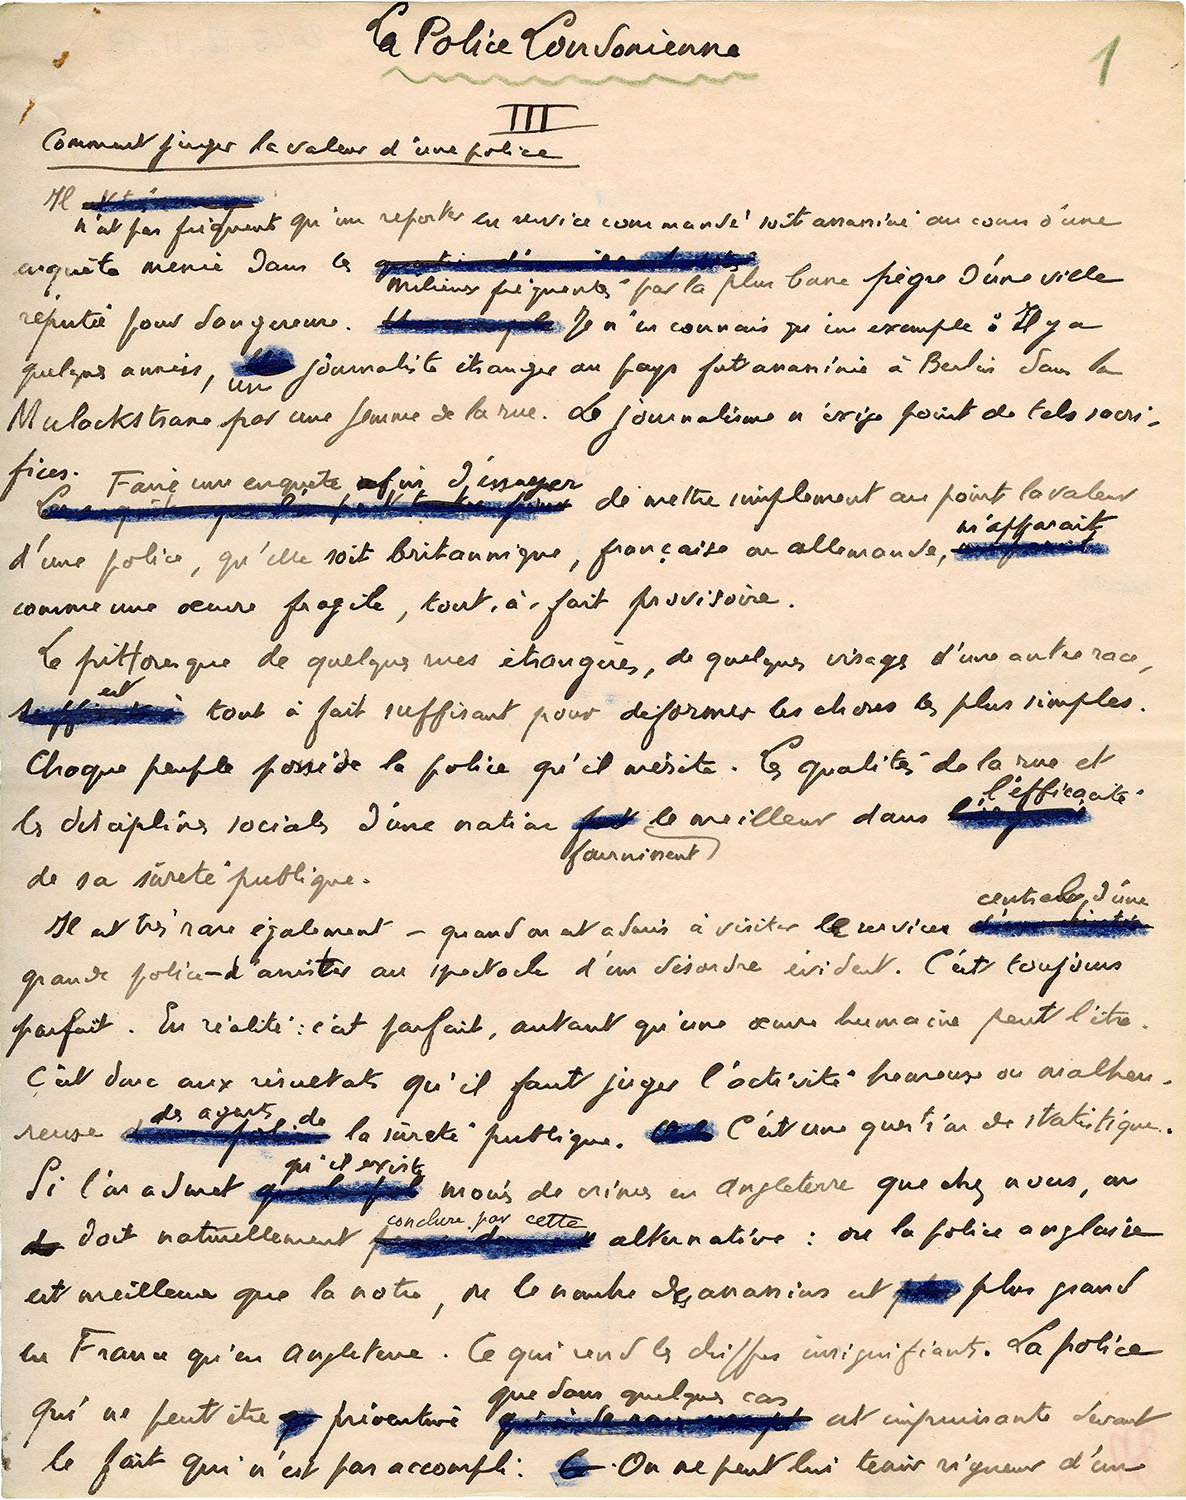 La Police Londonienne
1
III
Comment juger la valeur d'une police
Il
n'est pas fréquent qu'un reporter en service commandé soit assassiné au cours d'une
enquête menée dans les
milieux fréquentés par la plus basse pègre d'une ville
réputée pour dangereuse. Je n'en connais qu'un exemple : Il y a
quelques années, un journaliste étranger au pays fut assassiné à Berlin dans la
Mulackstrasse par une femme de la rue. Le journalisme n'exige point de tels sacri-
fices. Faire une enquête afin d'essayer
de mettre simplement au point la valeur
d'une police, qu'elle soit britannique, française ou allemande, m'apparaît
comme une œuvre fragile, tout-à-fait provisoire.
Le pittoresque de quelques rues étrangères, de quelques visages d'une autre race,
est tout à fait suffisant pour déformer les choses les plus simples.
Chaque peuple possède la police qu'il mérite. Les qualités de la rue et
les disciplines sociales d'une nation fournissent le meilleur dans l'efficacité
de sa sûreté publique.
Il est très rare également – quand on est admis à visiter les services centraux d'une
grande police – d'assister au spectacle d'un désordre évident. C'est toujours
parfait. En réalité : c'est parfait, autant qu'une œuvre humaine peut l'être.
C'est donc aux résultats qu'il faut juger l'activité heureuse ou malheu-
reuse des agents de la sûreté publique. C'est une question de statistique.
Si l'on admet qu'il existe moins de crimes en Angleterre que chez nous, on
doit naturellement conclure par cette alternative : ou la police anglaise
est meilleure que la notre, ou le nombre des assassins est plus grand
en France qu'en Angleterre. Ce qui rend les chiffres insignifiants. La police
qui ne peut être préventive que dans quelques cas est impuissante devant
le fait qui n'est pas accompli. On ne peut lui tenir rigueur d'un